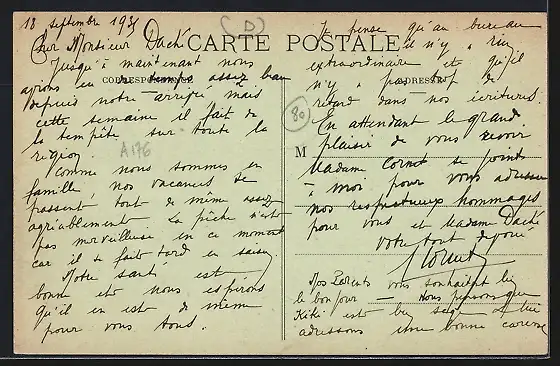 18 septembre 1935
Cher Monsieur Daché
Jusqu'à maintenant nous
avions eu du temps assez beau
depuis notre arrivée mais
cette semaine il fait de
la tempête sur toute la
région.
Comme nous sommes en
famille nos vacances se
passent tout de même assez
agréablement. La pêche n'est
pas merveilleuse en ce moment
car il se fait tard en saison
Notre santé est
bonne et nous espérons
qu'il en est de même
pour vous tous.
(D)
CARTE POSTALE
CORRESPONDANCE
ADRESSE
80
A176
M
Je pense qu'au bureau
il n'y a rien
extraordinaire et qu'il
n'y a pas trop de
retard dans nos écritures.
En attendant le grand
plaisir de vous revoir
Madame Cornet se joint
à moi pour vous adresser
nos respectueux hommages
pour vous et Madame Daché
Votre tout dévoué
Cornet
Nos Parents vous souhaitent bien
le bonjour — Nous pensons que
Kiki est bien sage et lui
adressons une bonne caresse